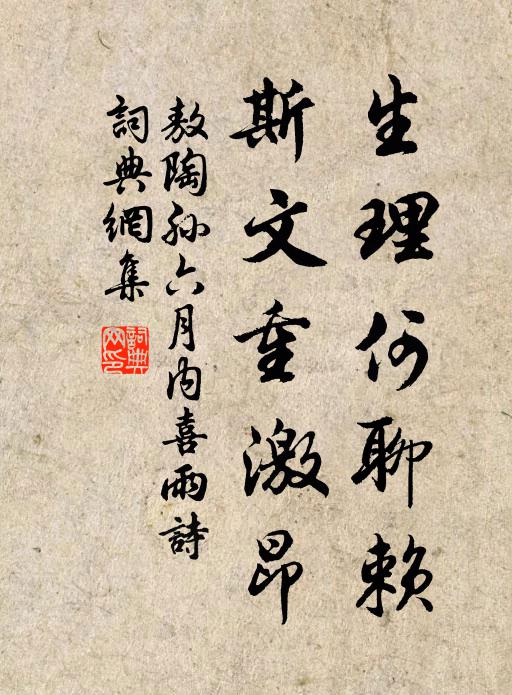 生理何聊賴
斯文重激昂
敖陶孙六月内喜雨詩
詞典網集
詞典
网印